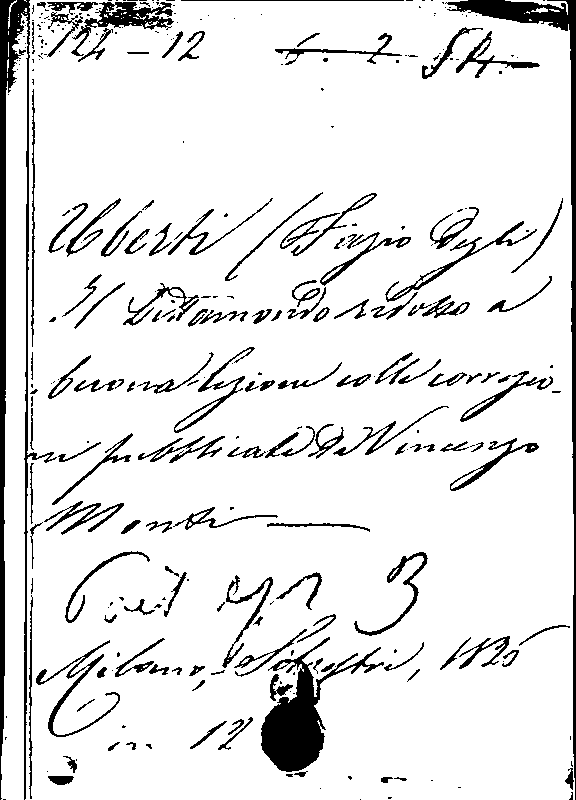 124-12 6. 2. SR.
Uberti (Fazio Degli)
Il Dittamondo ridotto a
buona lezione colle correzio-
ni pubblicate Da Vincenzo
Monti
3
Milano, Silvestri, 1826
in 12